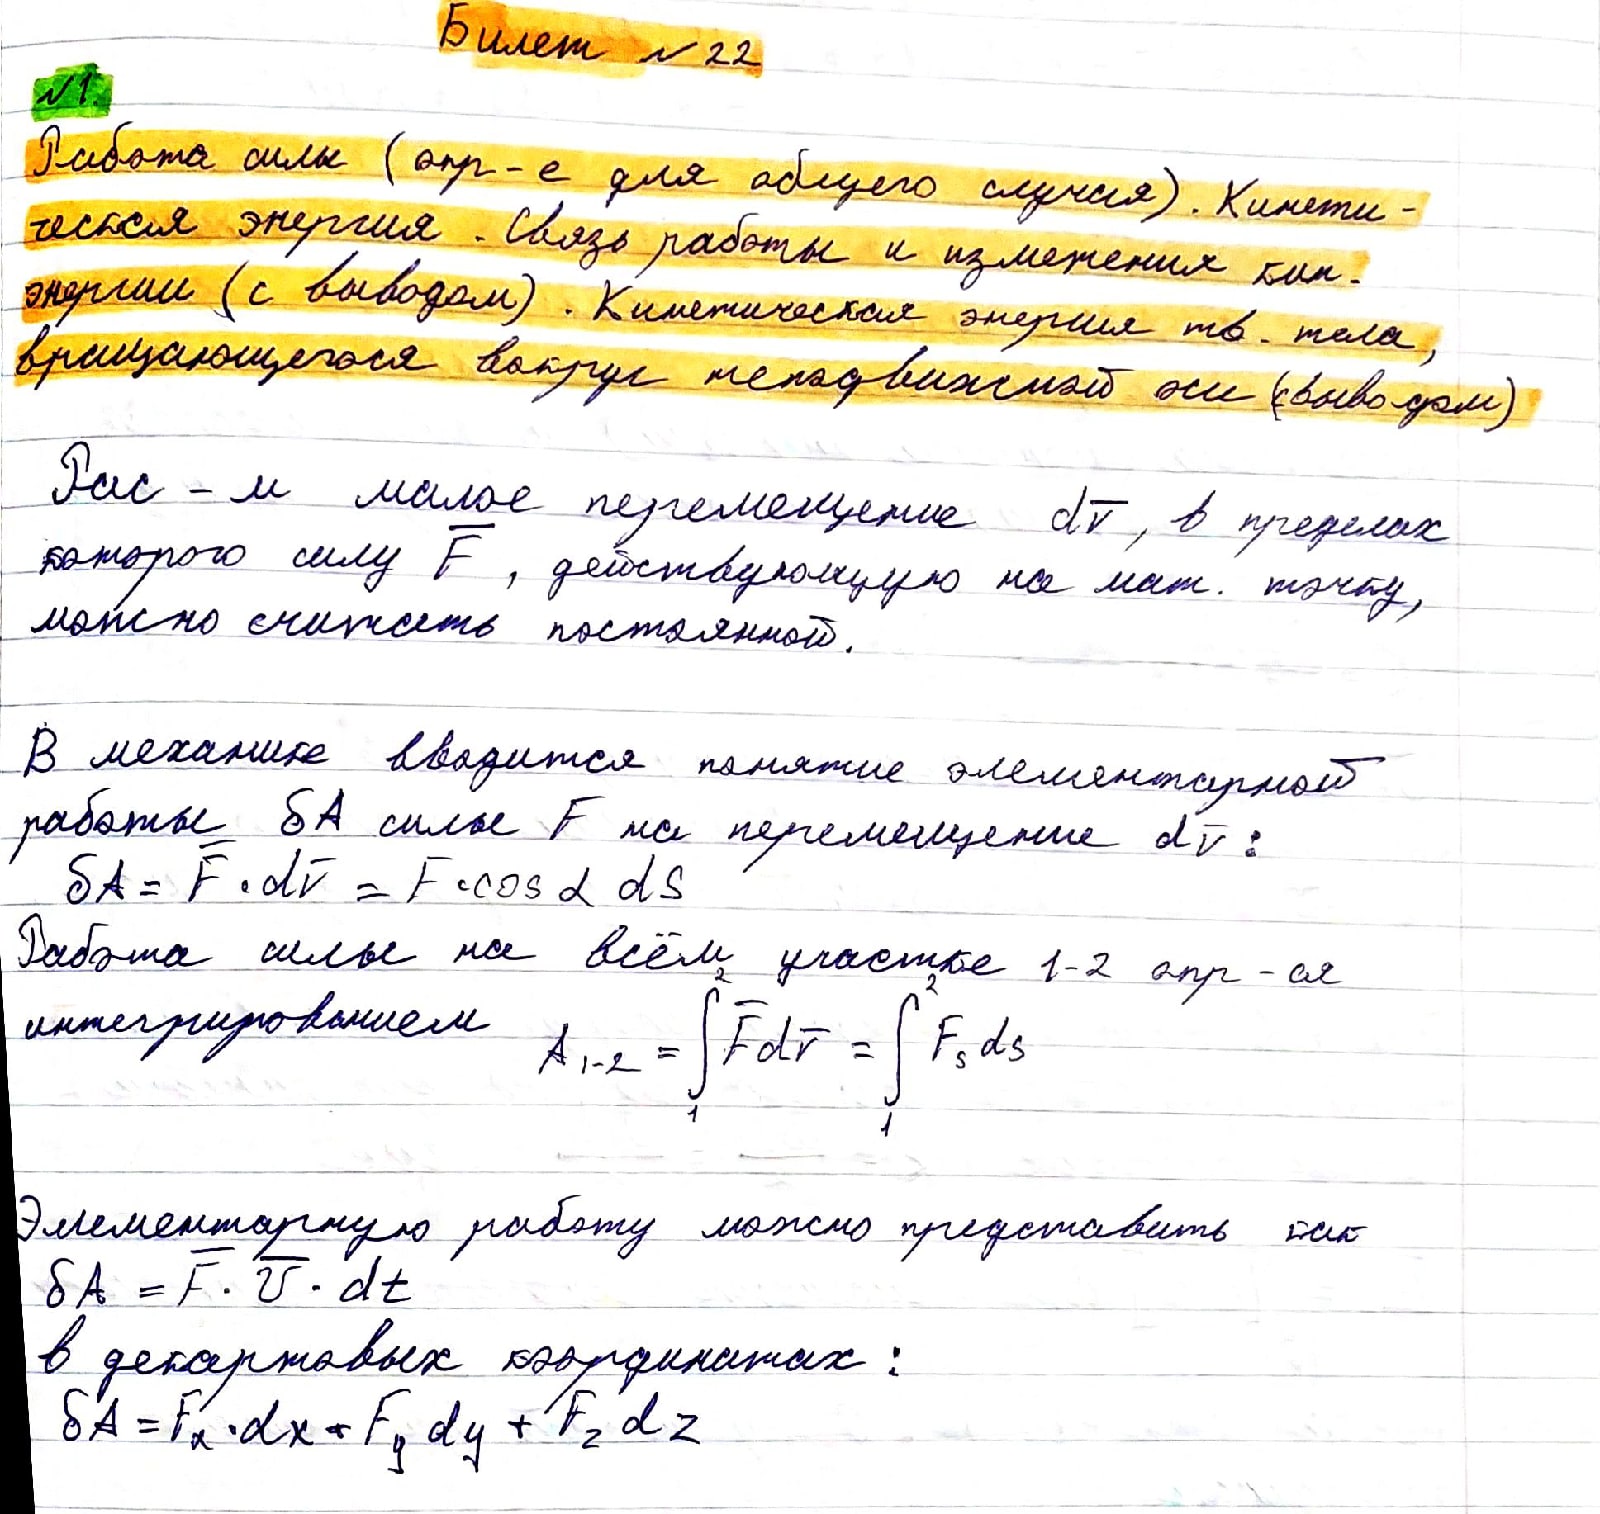 Билет №22
№1.
Работа силы (опр-е для общего случая). Кинети-
ческая энергия. Связь работы и изменения кин.
энергии (с выводом). Кинетическая энергия тв. тела,
вращающегося вокруг неподвижной оси (с выводом)
Рас-м малое перемещение dr̅, в пределах
которого силу F̅, действующую на мат. точку,
можно считать постоянной.
В механике вводится понятие элементарной
работы δA силы F̅ на перемещение dr̅:
δA = F̅·dr̅ = F·cosα ds
Работа силы на всём участке 1-2 опр-ся
интегрированием A₁₋₂ = ∫₁² F̅dr̅ = ∫₁² Fₛds
Элементарную работу можно представить как
δA = F̅·υ̅·dt
в декартовых координатах:
δA = Fₓ·dx + F_y dy + F_z dz